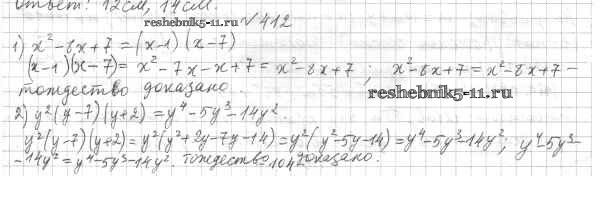 ответ: 12 см, 14 см.
reshebnik5-11.ru № 412
1) x² - 8x + 7 = (x-1)(x-7)
(x-1)(x-7) = x² - 7x - x + 7 = x² - 8x + 7 ; x² - 8x + 7 = x² - 8x + 7 -
тождество доказано.
reshebnik5-11.ru
2) y²(y-7)(y+2) = y⁴ - 5y³ - 14y².
y²(y-7)(y+2) = y²(y² + 2y - 7y - 14) = y²(y² - 5y - 14) = y⁴ - 5y³ - 14y²; y⁴ - 5y³ -
- 14y² = y⁴ - 5y³ - 14y². тождество доказано.